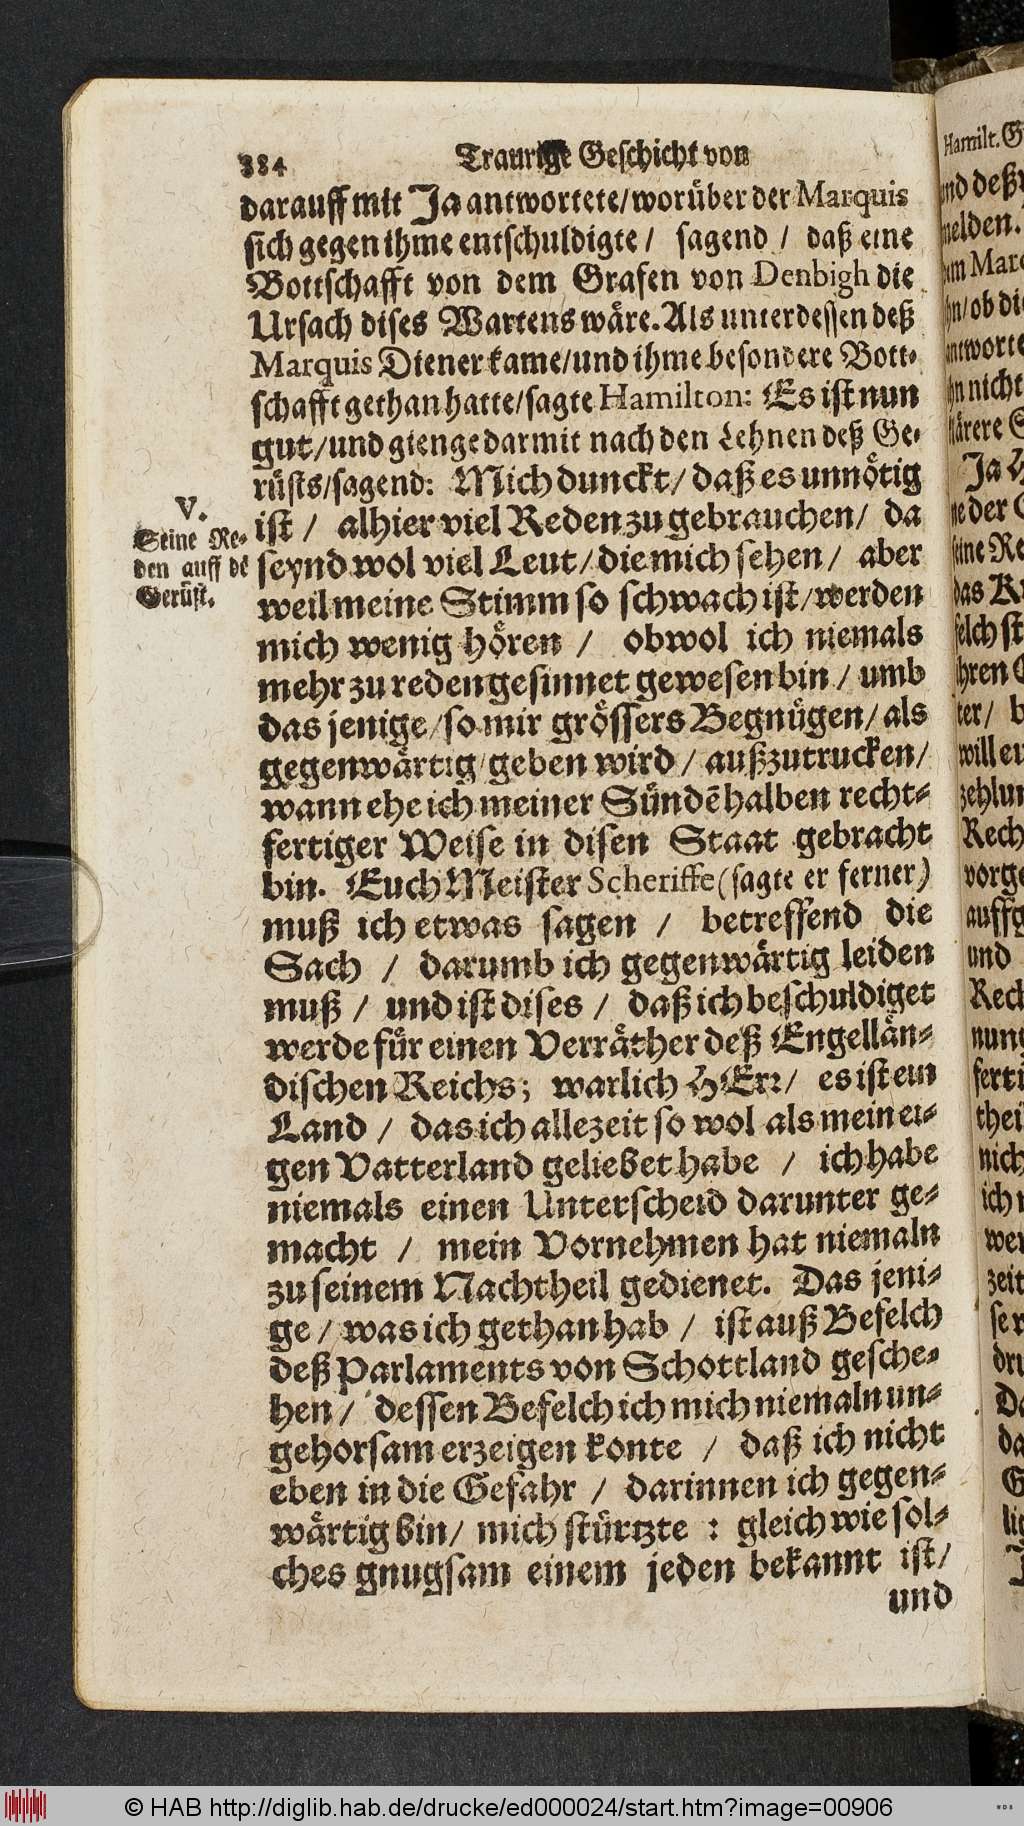 384 Traurige Geschicht von
darauff mit Ja antwortete/worüber der Marquis
sich gegen ihme entschuldigte / sagend / daß eine
Bottschafft von dem Grafen von Denbigh die
Ursach dises Wartens wäre. Als unterdessen deß
Marquis Diener kame/und ihme besondere Bott-
schafft gethan hatte/sagte Hamilton: Es ist nun
gut/und gienge darmit nach den Lehnen deß Ge-
rüsts/sagend: Mich dunckt/daß es unnötig
V.
Seine Re-
den auff dē
Gerüst.
ist / alhier viel Reden zu gebrauchen/ da
seynd wol viel Leut/die mich sehen/ aber
weil meine Stimm so schwach ist/werden
mich wenig hören / obwol ich niemals
mehr zu reden gesinnet gewesen bin / umb
das jenige/so mir grössers Begnügen/als
gegenwärtig/geben wird/außzutrucken/
wann ehe ich meiner Sündē halben recht-
fertiger Weise in disen Staat gebracht
bin. Euch Meister Scheriffe (sagte er ferner)
muß ich etwas sagen / betreffend die
Sach / darumb ich gegenwärtig leiden
muß / und ist dises / daß ich beschuldiget
werde für einen Verräther deß Engellän-
dischen Reichs; warlich HErr/ es ist ein
Land / das ich allezeit so wol als mein ei-
gen Vatterland geliebet habe / ich habe
niemals einen Unterscheid darunter ge-
macht / mein Vornehmen hat niemaln
zu seinem Nachtheil gedienet. Das jeni-
ge / was ich gethan hab / ist auß Befelch
deß Parlaments von Schottland gesche-
hen / dessen Befelch ich mich niemaln un-
gehorsam erzeigen konte / daß ich nicht
eben in die Gefahr / darinnen ich gegen-
wärtig bin/ mich stürtzte : gleich wie sol-
ches gnugsam einem jeden bekannt ist/
und
© HAB http://diglib.hab.de/drucke/ed000024/start.htm?image=00906